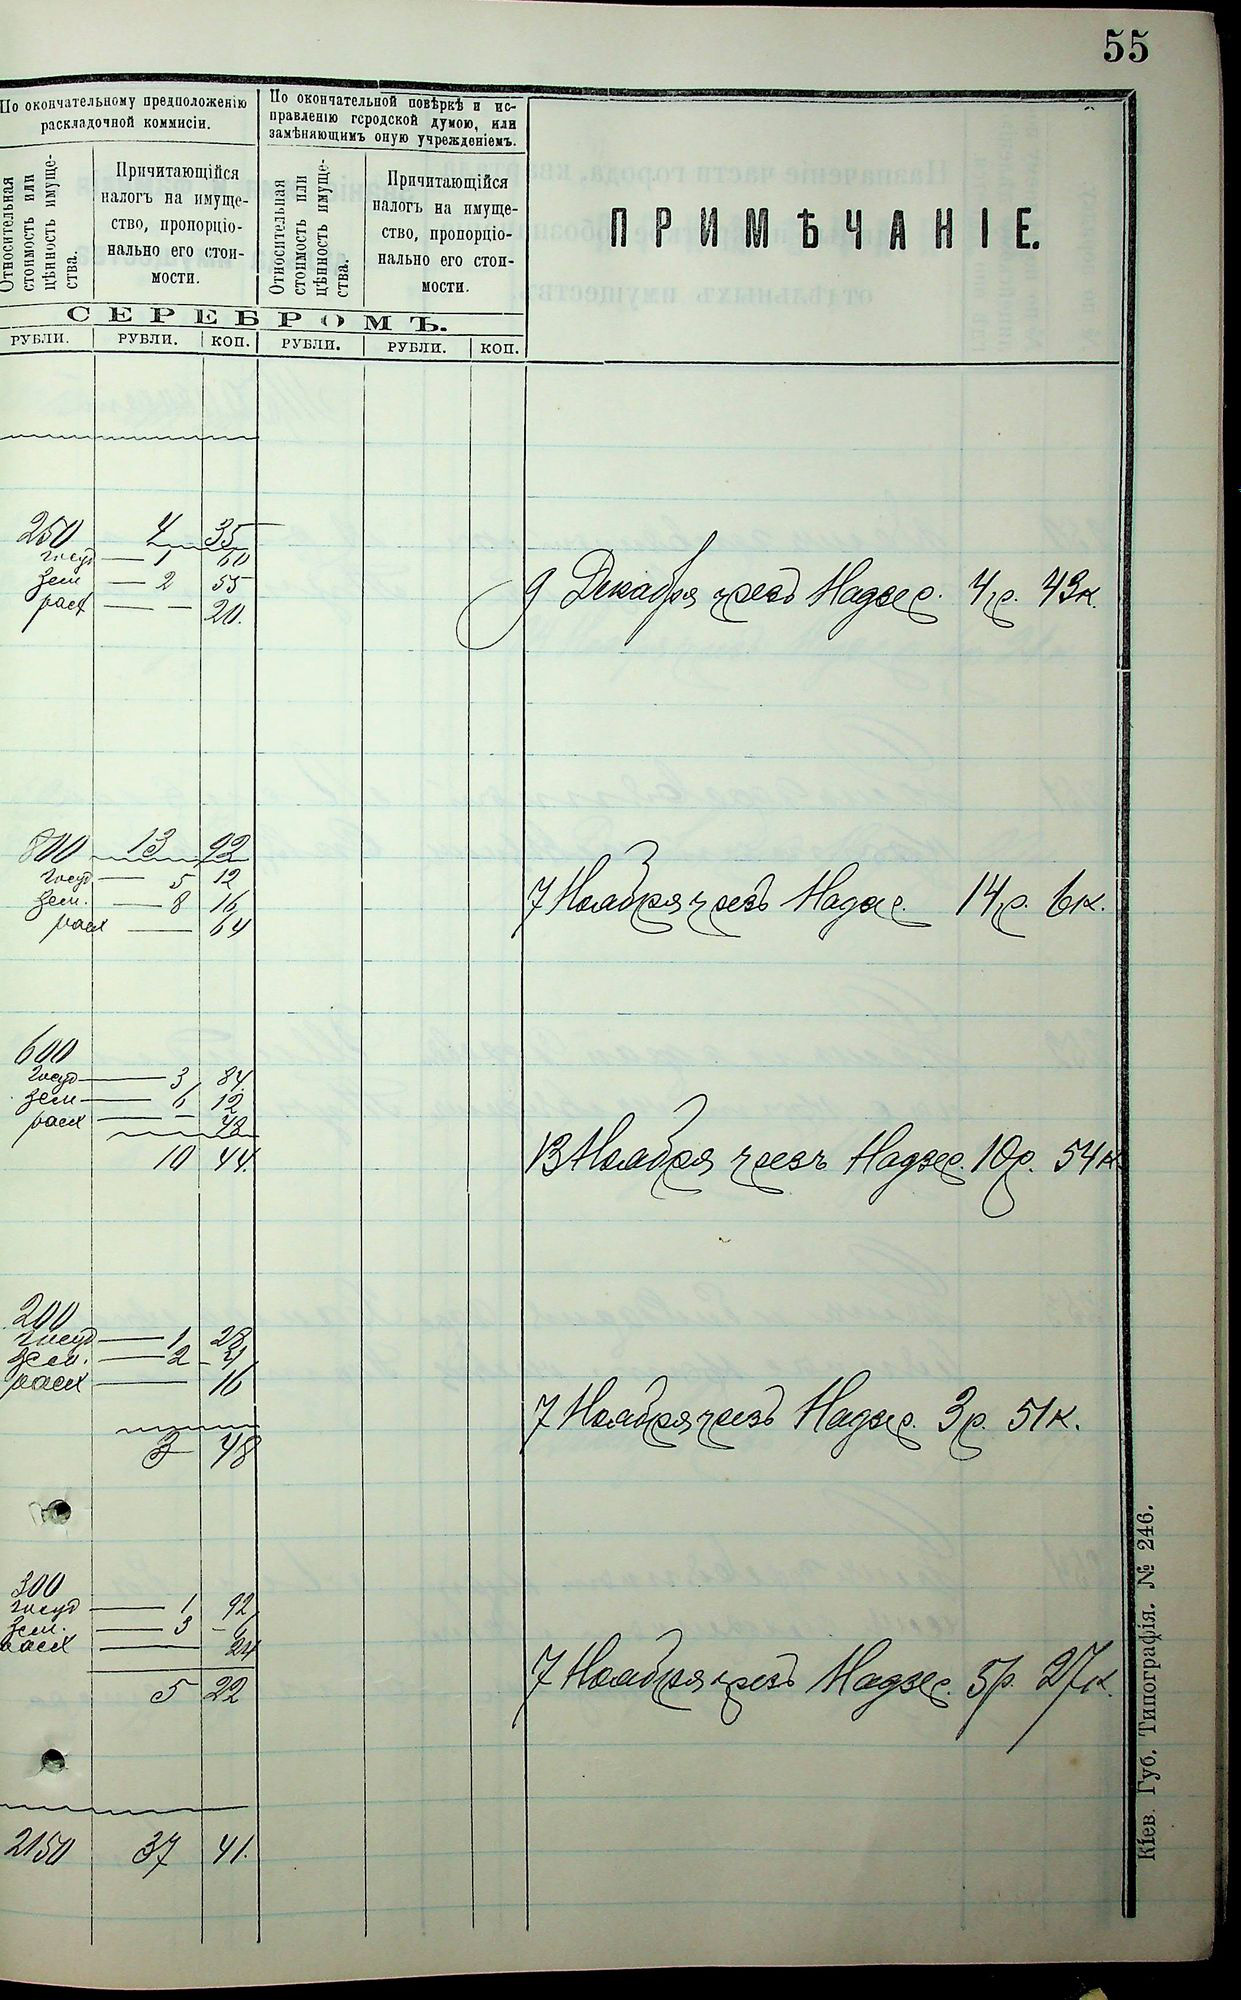 55
По окончательному предположенію
раскладочной коммисіи.
По окончательной повѣркѣ и ис-
правленію городской думою, или
замѣняющимъ оную учрежденіемъ.
Относительная
стоимость или
цѣнность имуще-
ства.
Причитающійся
налогъ на имуще-
ство, пропорціо-
нально его стои-
мости.
Относительная
стоимость или
цѣнность имуще-
ства.
Причитающійся
налогъ на имуще-
ство, пропорціо-
нально его стои-
мости.
ПРИМѢЧАНІЕ.
СЕРЕБРОМЪ.
РУБЛИ. РУБЛИ. КОП. РУБЛИ. РУБЛИ. КОП.
250 4 35
госуд — 1 60
зем — 2 55
расх — — 20.
9 Декабря чрезъ Надзер. 4 р. 43 к.
800 13 92
госуд — 5 12
зем. — 8 16
расх — 64
7 Ноября чрезъ Надзер. 14 р. 6 к.
600
госуд — 3 84
зем — 6 12
расх — — 48
10 44
13 Ноября чрезъ Надзер. 10 р. 54 к
200
госуд — 1 28
зем. — 2 4
расх — 16
3 48
7 Ноября чрезъ Надзер. 3 р. 51 к.
300
госуд — 1 92
зем. — 3 6
расх — 24
5 22
7 Ноября чрезъ Надзер. 5 р. 27 к.
2150 37 41.
Кіев. Губ. Типографія. № 246.